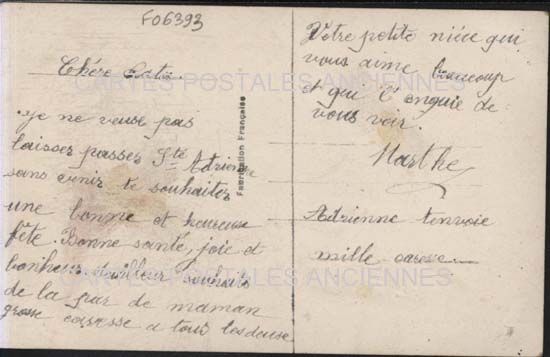 F06393
Chère
je ne veuse pas
laisser passer Ste Adrienne
sans venir te souhaiter
une bonne et heureuse
fête. Bonne santé, joie et
bonheur meilleur souhais
de la par de maman
grosse caresse a tous les deuse
Fabrication Française
Votre petite nièce qui
vous aime beaucoup
et qui l'enguie de
vous voir.
Marthe
Adrienne tenvoie
mille caresse
CARTES POSTALES ANCIENNES
CARTES POSTALES ANCIENNES